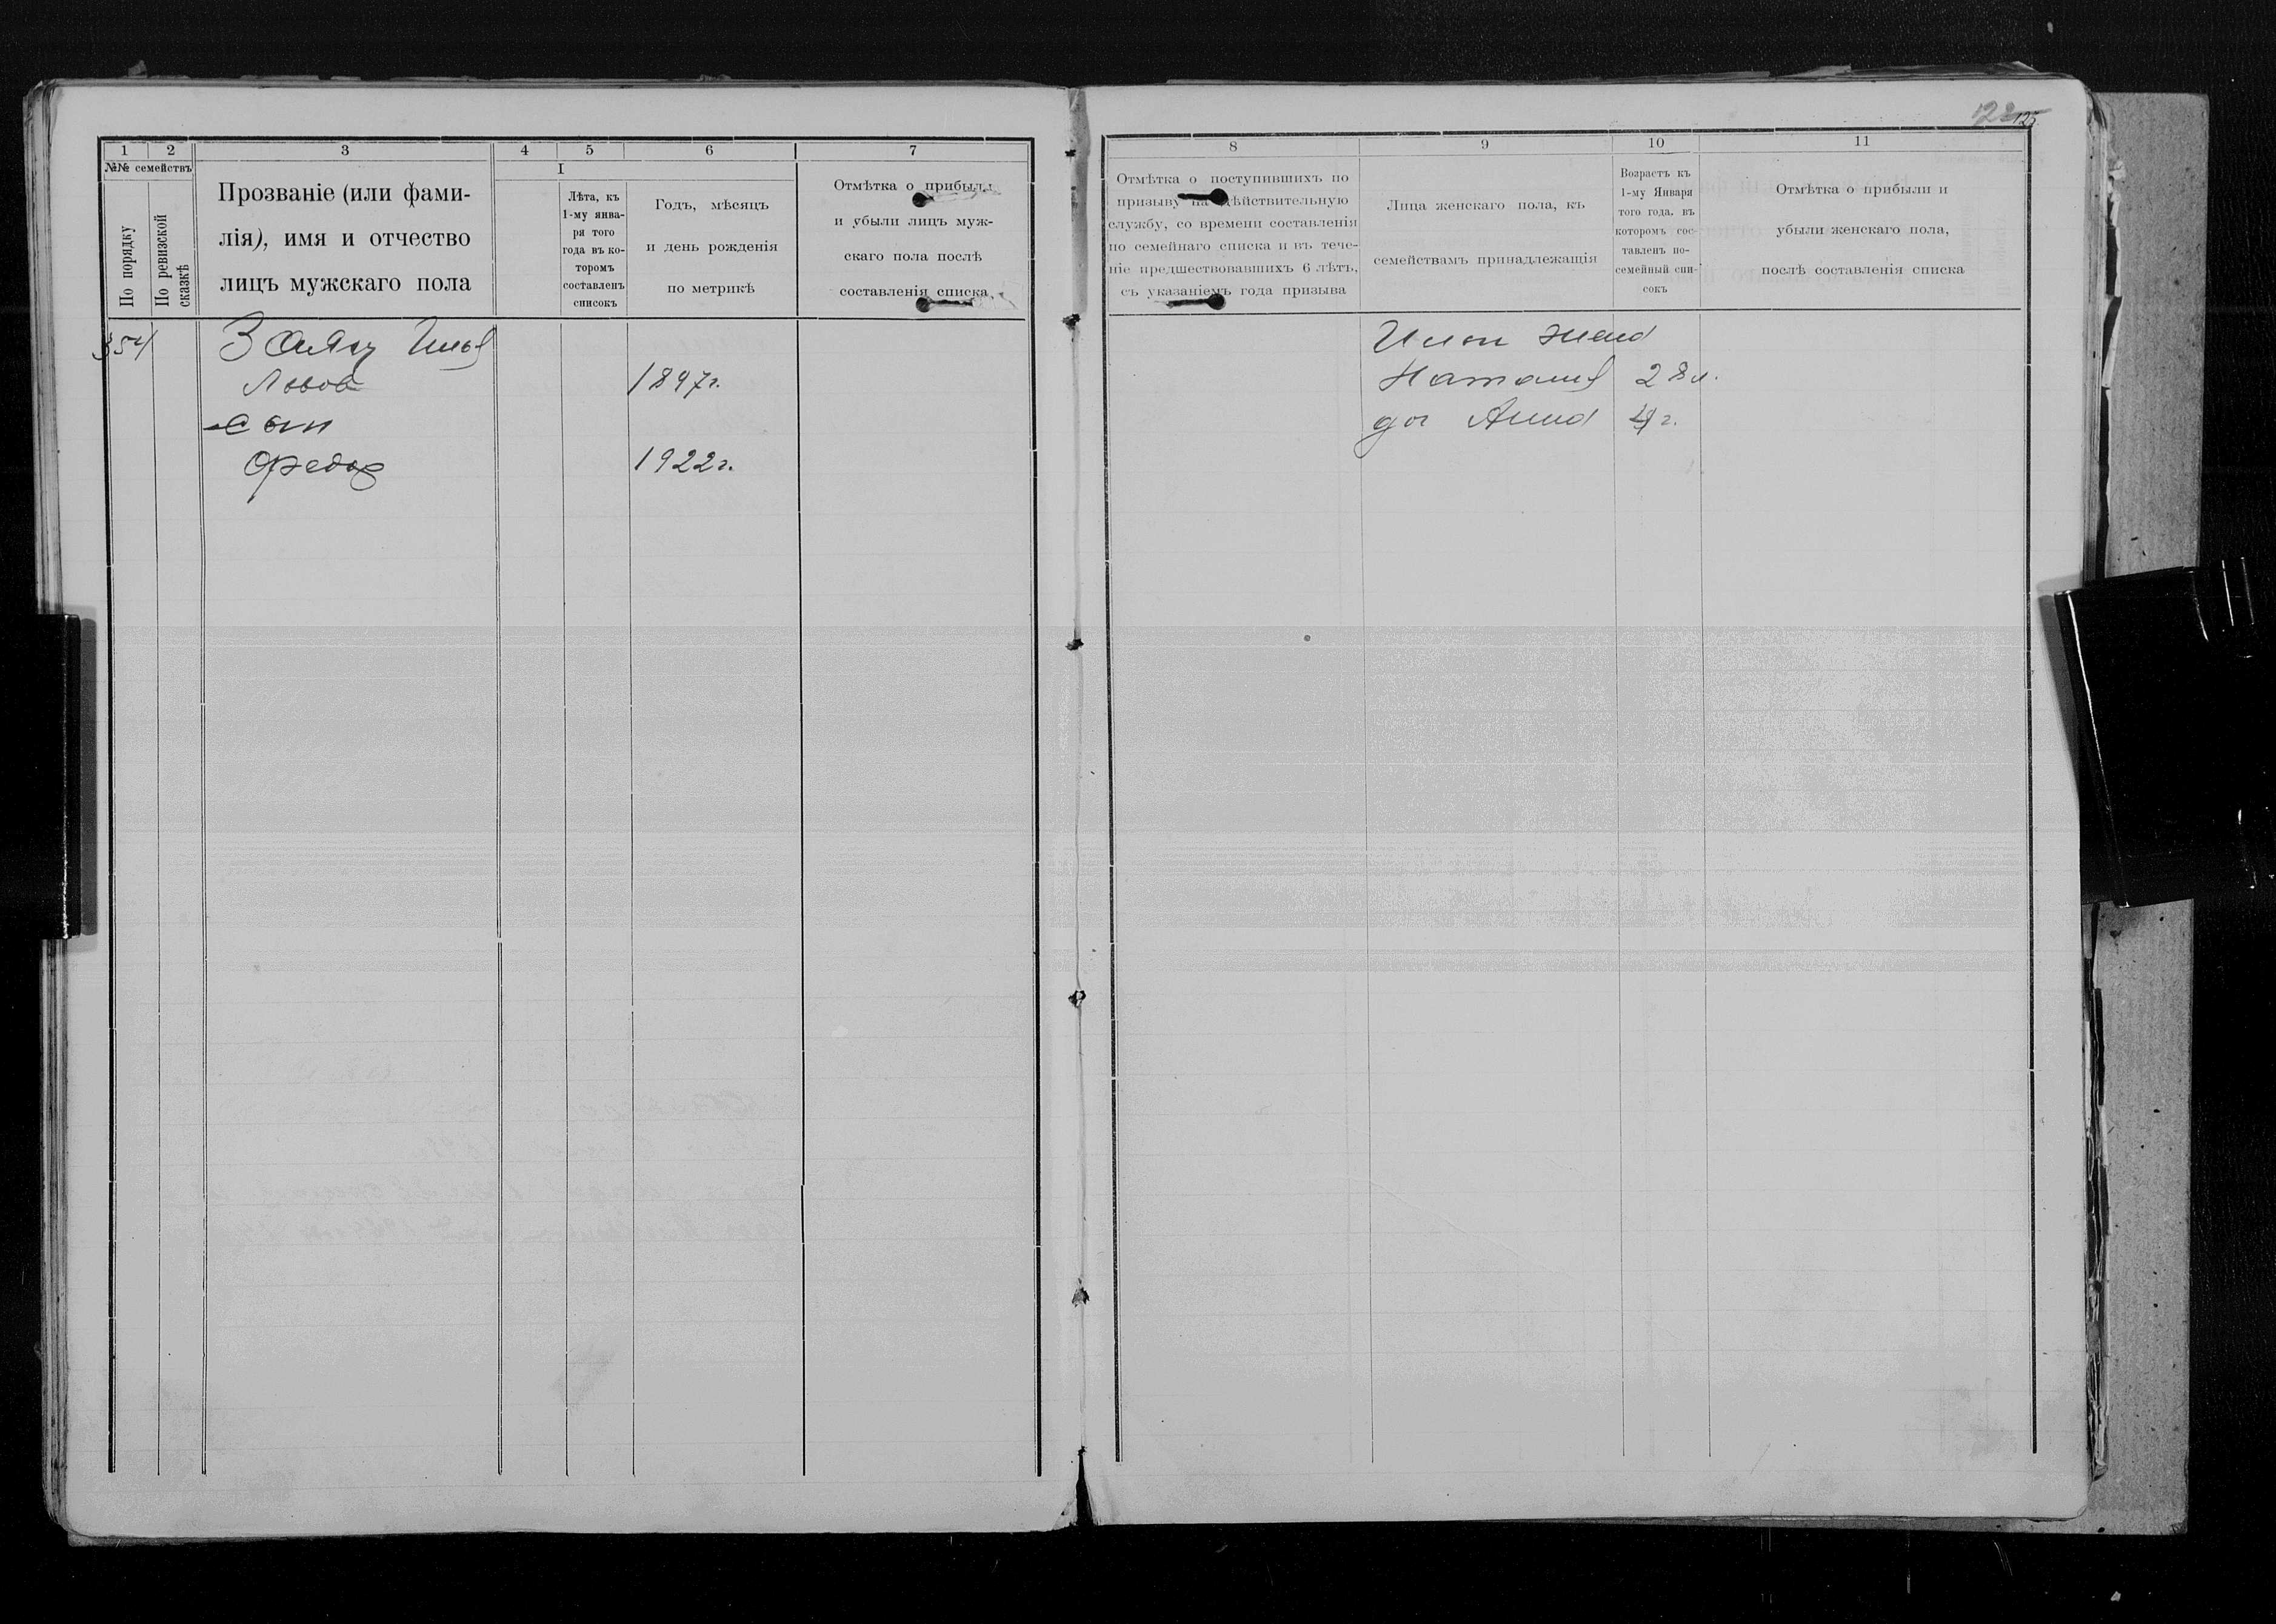 123 125
1 2 3 4 5 6 7
№№ семействъ
По порядку
По ревизской сказкѣ
Прозваніе (или фами-
лія), имя и отчество
лицъ мужскаго пола
I
Лѣта, къ
1-му янва-
ря того
года въ ко-
торомъ
составленъ
списокъ
Годъ, мѣсяцъ
и день рожденія
по метрикѣ
Отмѣтка о прибыли
и убыли лицъ муж-
скаго пола послѣ
составленія списка
354
Илья
Львов 1897г.
сын
Федор 1922г.
8 9 10 11
Отмѣтка о поступившихъ по
призыву на дѣйствительную
службу, со времени составленія
по семейнаго списка и въ тече-
ніе предшествовавшихъ 6 лѣтъ,
съ указаніемъ года призыва
Лица женскаго пола, къ
семействамъ принадлежащія
Возрастъ къ
1-му Января
того года, въ
которомъ сос-
тавленъ по-
семейный спи-
сокъ
Отмѣтка о прибыли и
убыли женскаго пола,
послѣ составленія списка
Ильи жена
Наталия 28 л.
доч Анна 4 г.